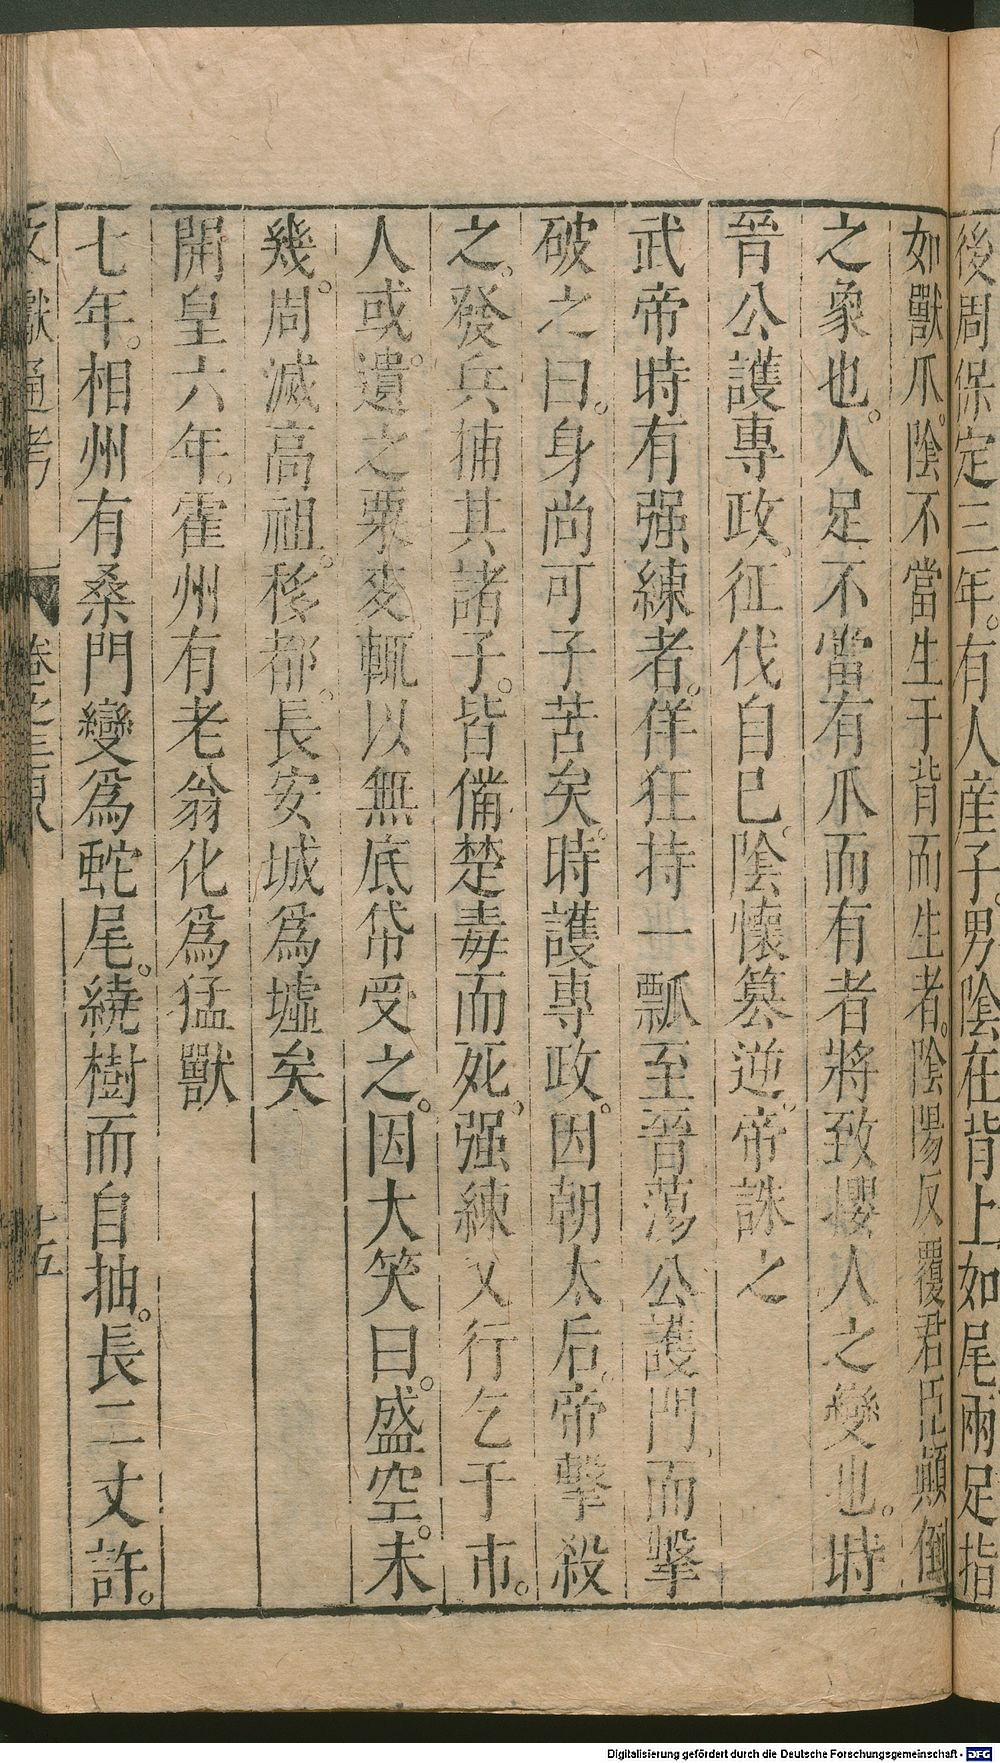 後周保定三年。有人産子。男陰在背上如尾兩足指
如獸爪。陰不當生于背而生者。陰陽反覆君臣顛倒
之象也。人足不當有爪而有者將致攫人之變也。時
晉公護專政。征伐自己。陰懷篡逆。帝誅之
武帝時有强練者。佯狂持一瓢至晉蕩公護門。而擊
破之曰。身尚可子苦矣。時護專政。因朝太后。帝擊殺
之。發兵捕其諸子。皆備楚毒而死。强練又行乞于市。
人或遺之粟麥。輒以無底帒受之。因大笑曰。盛空。未
幾。周滅。高祖。移都。長安城爲墟矣
開皇六年。霍州有老翁化爲猛獸
七年。相州有桑門變爲蛇尾。繞樹而自抽。長二丈許。
文獻通考 卷之三百八 十五
Digitalisierung gefördert durch die Deutsche Forschungsgemeinschaft - DFG